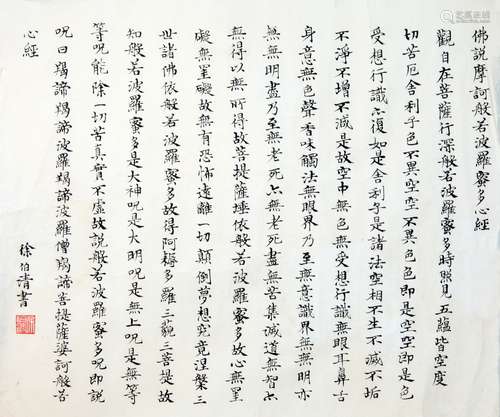 佛説摩訶般若波羅蜜多心經
觀自在菩薩行深般若波羅蜜多時照見五蘊皆空度
切苦厄舍利子色不異空空不異色色即是空空即是色
受想行識亦復如是舍利子是諸法空相不生不滅不垢
不淨不增不減是故空中無色無受想行識無眼耳鼻舌
身意無色聲香味觸法無眼界乃至無意識界無無明亦
無無明盡乃至無老死亦無老死盡無苦集滅道無智亦
無得以無所得故菩提薩埵依般若波羅蜜多故心無罣
礙無罣礙故無有恐怖遠離一切顛倒夢想究竟涅槃三
世諸佛依般若波羅蜜多故得阿耨多羅三藐三菩提故
知般若波羅蜜多是大神呪是大明呪是無上呪是無等
等呪能除一切苦真實不虛故説般若波羅蜜多呪即説
呪曰揭諦揭諦波羅揭諦波羅僧揭諦菩提薩婆訶般若
心經
徐伯清書